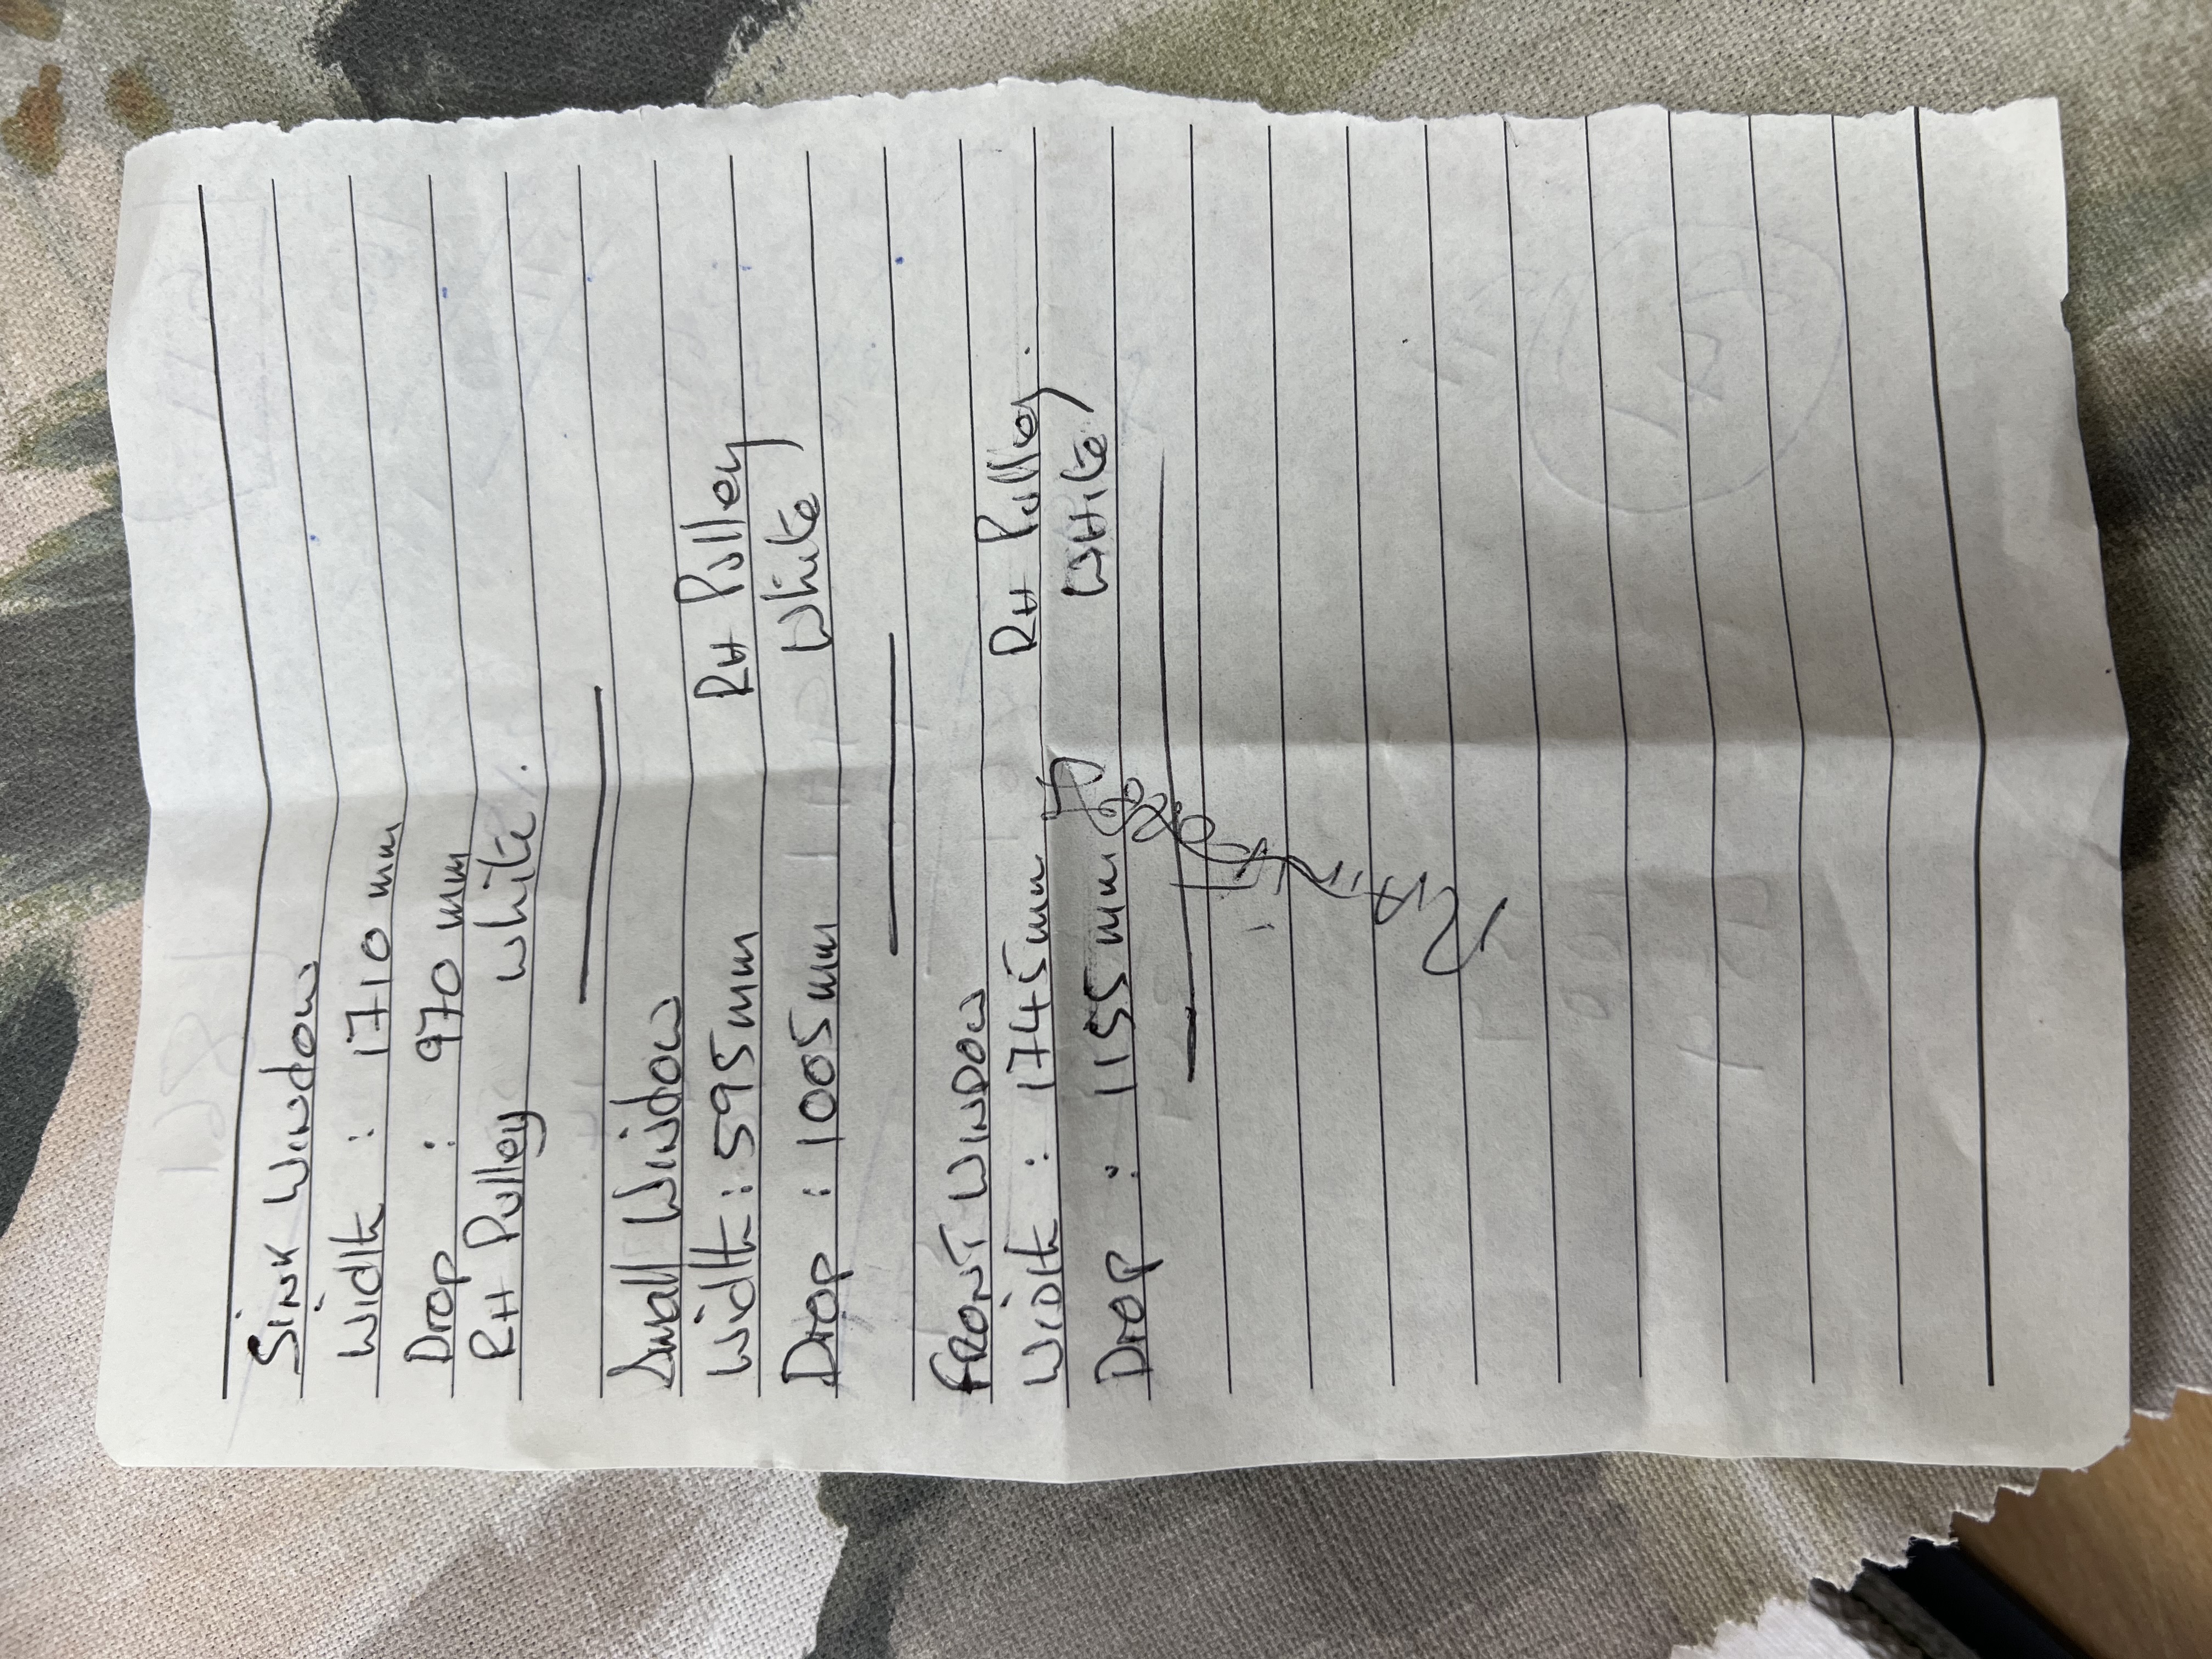 Sink Window
Width : 1710 mm
Drop : 970 mm
RH Pulley white.
Small Window
Width : 595mm RH Pulley
Drop : 1005mm White
FRONT WINDOW
Width : 1745mm RH Pulley.
Drop : 1155mm WHite